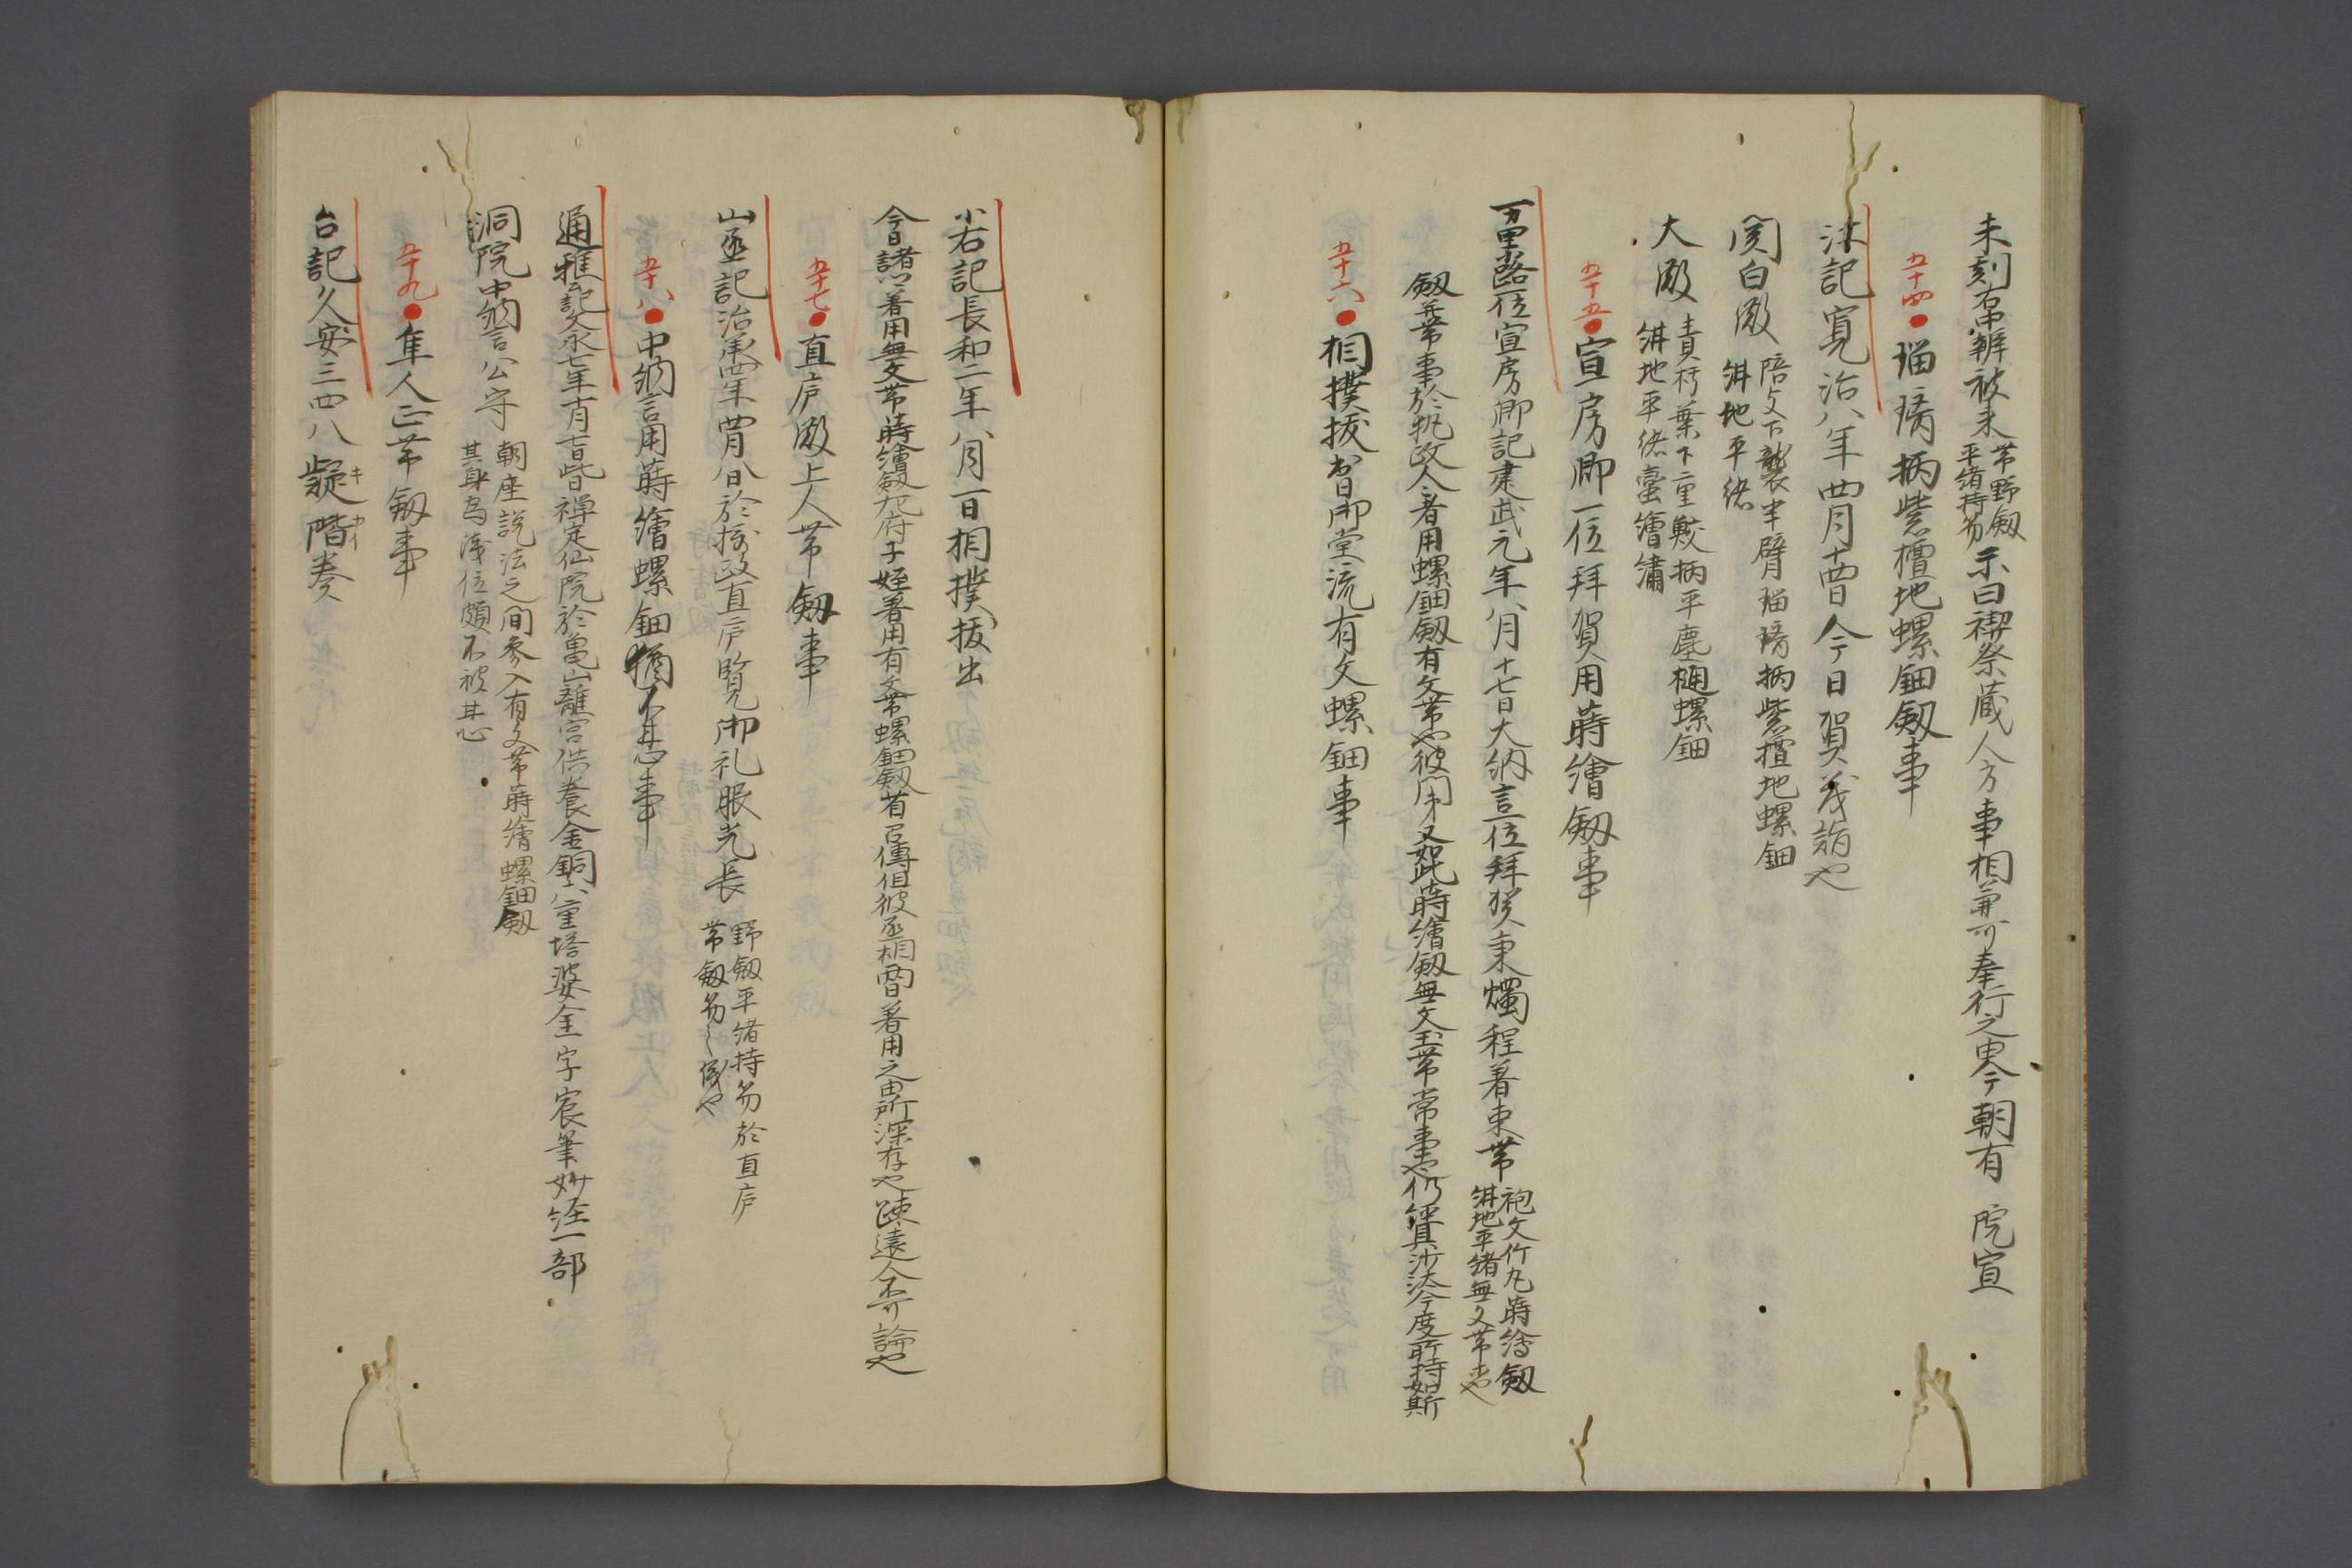 未刻右中辨被来
帯野釼
平緒持笏
示曰禊祭蔵人方事相兼可奉行之由今朝有 院宣
五十四 瑙璃柄紫檀地螺鈿釼事
江記寛治八年四月十四日今日賀茂詣也
関白殿
陪文下襲半臂瑙璃柄紫檀地螺鈿
紺地平緒
大殿
青朽葉下重鮫柄平塵樋螺鈿
紺地平緒蛮繪繍
五十五 宣房卿一位拜賀用蒔繪釼事
万里小路一位宣房卿記建武元年八月十七日大納言一位拜賀秉燭程著束帯
袍文竹丸蒔繪釼
紺地平緒無文帯也
釼并帯事於執政人者用螺鈿釼有文帯也彼閑院又如此蒔繪釼無文玉帯常事也仍沙汰今度所持如斯
五十六 相撲拔出日御堂流有文螺鈿事
小右記長和二年八月一日相撲拔出
今日諸卿著用無文帯蒔繪釼左府子姪著用有文帯螺鈿釼若相傳但彼丞相両日著用之由所深存也踈遠人不可論也
五十七 直庐殿上人帯釼事
山丞記治承四年四月八日於摂政直庐覧御礼服光長
野釼平緒持笏於直庐
帯釼笏之儀也
五十八 中納言用蒔繪螺鈿猶不甚心事
通雅公記文永七年十月七日皆禅定仙院於亀山離宮供養金銅八重塔婆金字宸筆妙經一部
洞院中納言公守
朝座説法之間参入有文帯蒔繪螺鈿釼
其身為浅位頗不被甘心
五十九 隼人正帯釼事
台記久安三四八擬階奏
キカイ